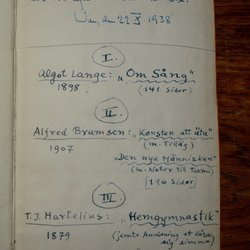 Wien, den 22 X. 1938
I.
Algot Lange: "Om Sång"
1898 (141 sidor)
II.
Alfred Bramsen: "Konsten att äta"
1907 (m. Tilläg)
"Den nya Människan"
(m. Noter till Texten)
116 sidor)
IV.
T.J. Hartelius: "Hemgymnastik"
1879 (jemte Anvisning att lära
sig simma)